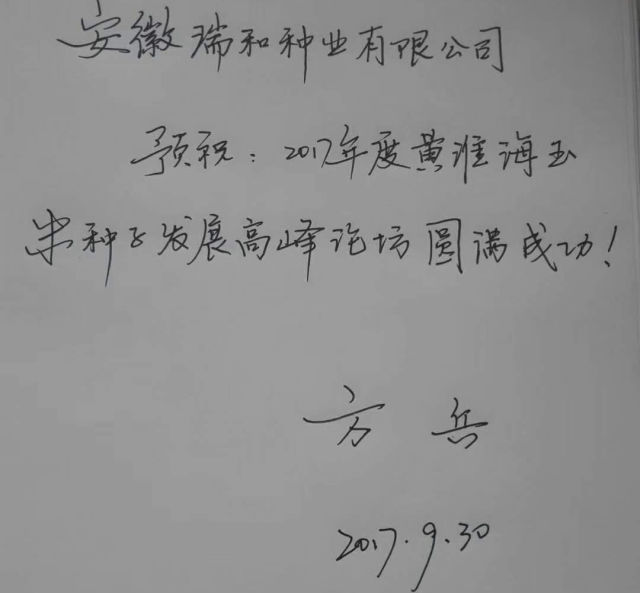 安徽瑞和种业有限公司
预祝：2017年度黄淮海玉
米种子发展高峰论坊圆满成功！
方兵
2017.9.30